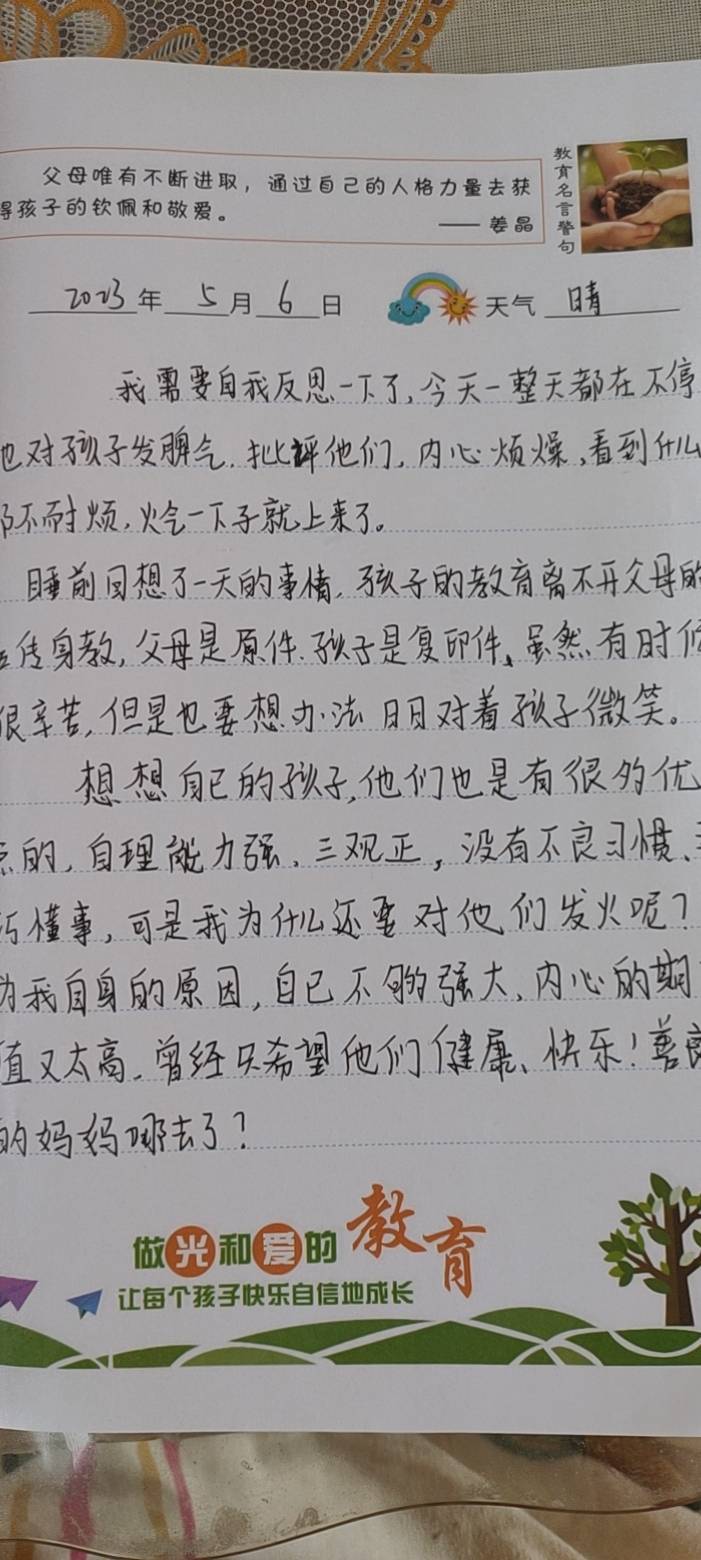 父母唯有不断进取，通过自己的人格力量去获
得孩子的钦佩和敬爱。
—— 姜晶
教育名言警句
2023年 5月 6日 天气 晴
我需要自我反思一下了,今天一整天都在不停
地对孩子发脾气.批评他们,内心烦燥,看到什么
都不耐烦,火气一下子就上来了。
睡前回想了一天的事情.孩子的教育离不开父母的
言传身教,父母是原件.孩子是复印件、虽然有时候
很辛苦,但是也要想办法日日对着孩子微笑。
想想自己的孩子,他们也是有很多优
点的,自理能力强、三观正,没有不良习惯、
巧懂事,可是我为什么还要对他们发火呢?
为我自身的原因,自己不够强大,内心的期
值又太高.曾经只希望他们健康、快乐!善良
的妈妈哪去了?
做光和爱的教育
让每个孩子快乐自信地成长